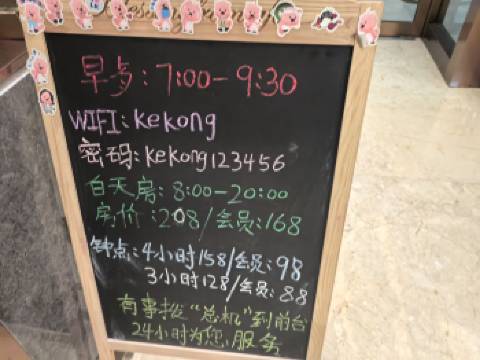 早歺:7:00-9:30
WIFI:kekong
密码:kekong123456
白天房:8:00-20:00
房价:208/会员:168
钟点:4小时158/会员:98
3小时128/会员:88
有事拨“总机”到前台
24小时为您服务